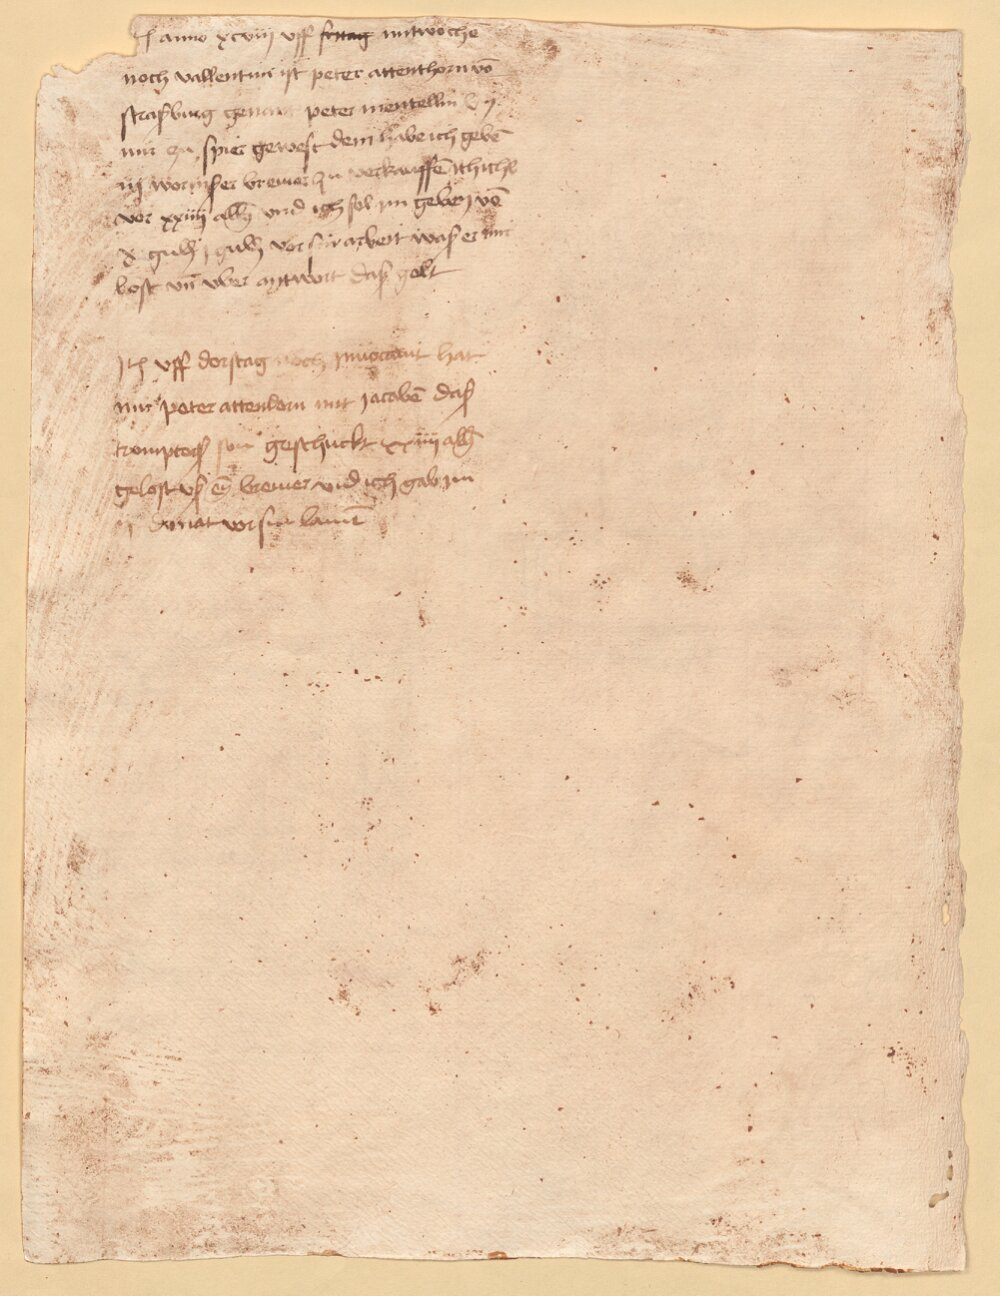 Jt̃ anno xcviij vff frittag mitwochẽ
noch vallentini ist peter attenthorn võ
straßburg genant peter mentellin bij
mir zu spier gewest dem habe ich gebẽ
iij wormser bremer zu verkauffẽ
vor xxiiij alb̃ vnd ich sol im geben vẽ
x guld̃ j guld̃ vor sin arbeit waß er mir
lost vñ vber antwort daß gelt
Jt̃ vff dorstag noch jnuocauit hat
mir peter attendorn mit jacobẽ daß
trompters son geschickt xxiiij alb̃
gelost vß eim bremer vnd ich gab im
j donat vor sin